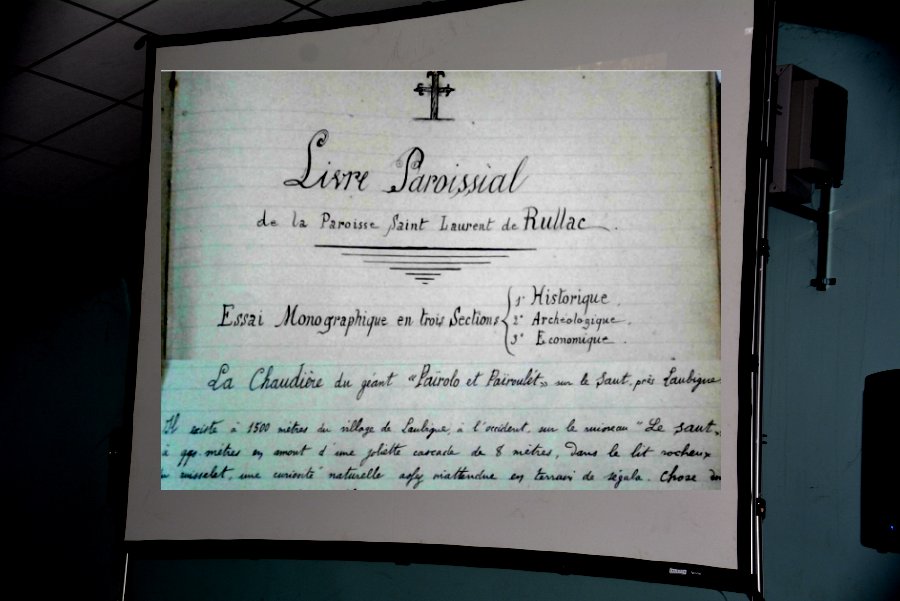 Livre Paroissial
de la Paroisse Saint Laurent de Rullac.
Essai Monographique en trois Sections
1° Historique.
2° Archéologique.
3° Economique.
La Chaudière du géant "Païrolo et Païroulét" sur le Saut, près Laubigue
Il existe à 1500 mètres du village de Laubigue, à l'occident, sur le ruisseau "Le Saut",
à qqs mètres en amont d'une joliette cascade de 8 mètres, dans le lit rocheux
du ruisselet, une curiosité naturelle assez inattendue en terrain de ségala. Chose